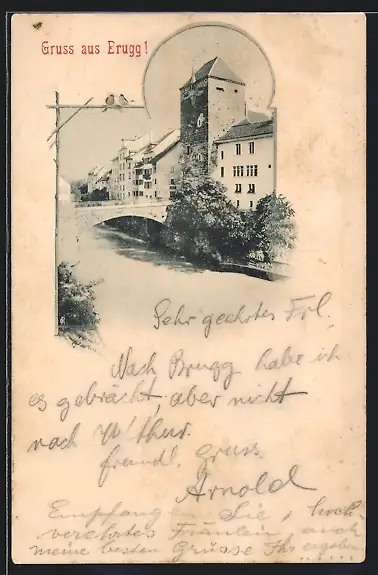 Gruss aus Erugg!
Sehr geehrtes Frl.
Nach Brugg habe ich
es gebracht, aber nicht
nach W'thur.
freundl. gruss
Arnold
Empfangen Sie, hoch-
verehrtes Fräulein, auch
meine besten Grüsse Ihr ergeben